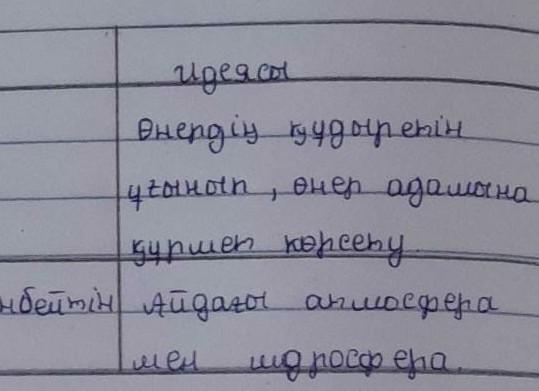 идеясы
Өнердің құдіретін
ұғынып, өнер адамына
құрмет көрсету.
нбейтін Айдағы атмосфера
мен гидросфера.